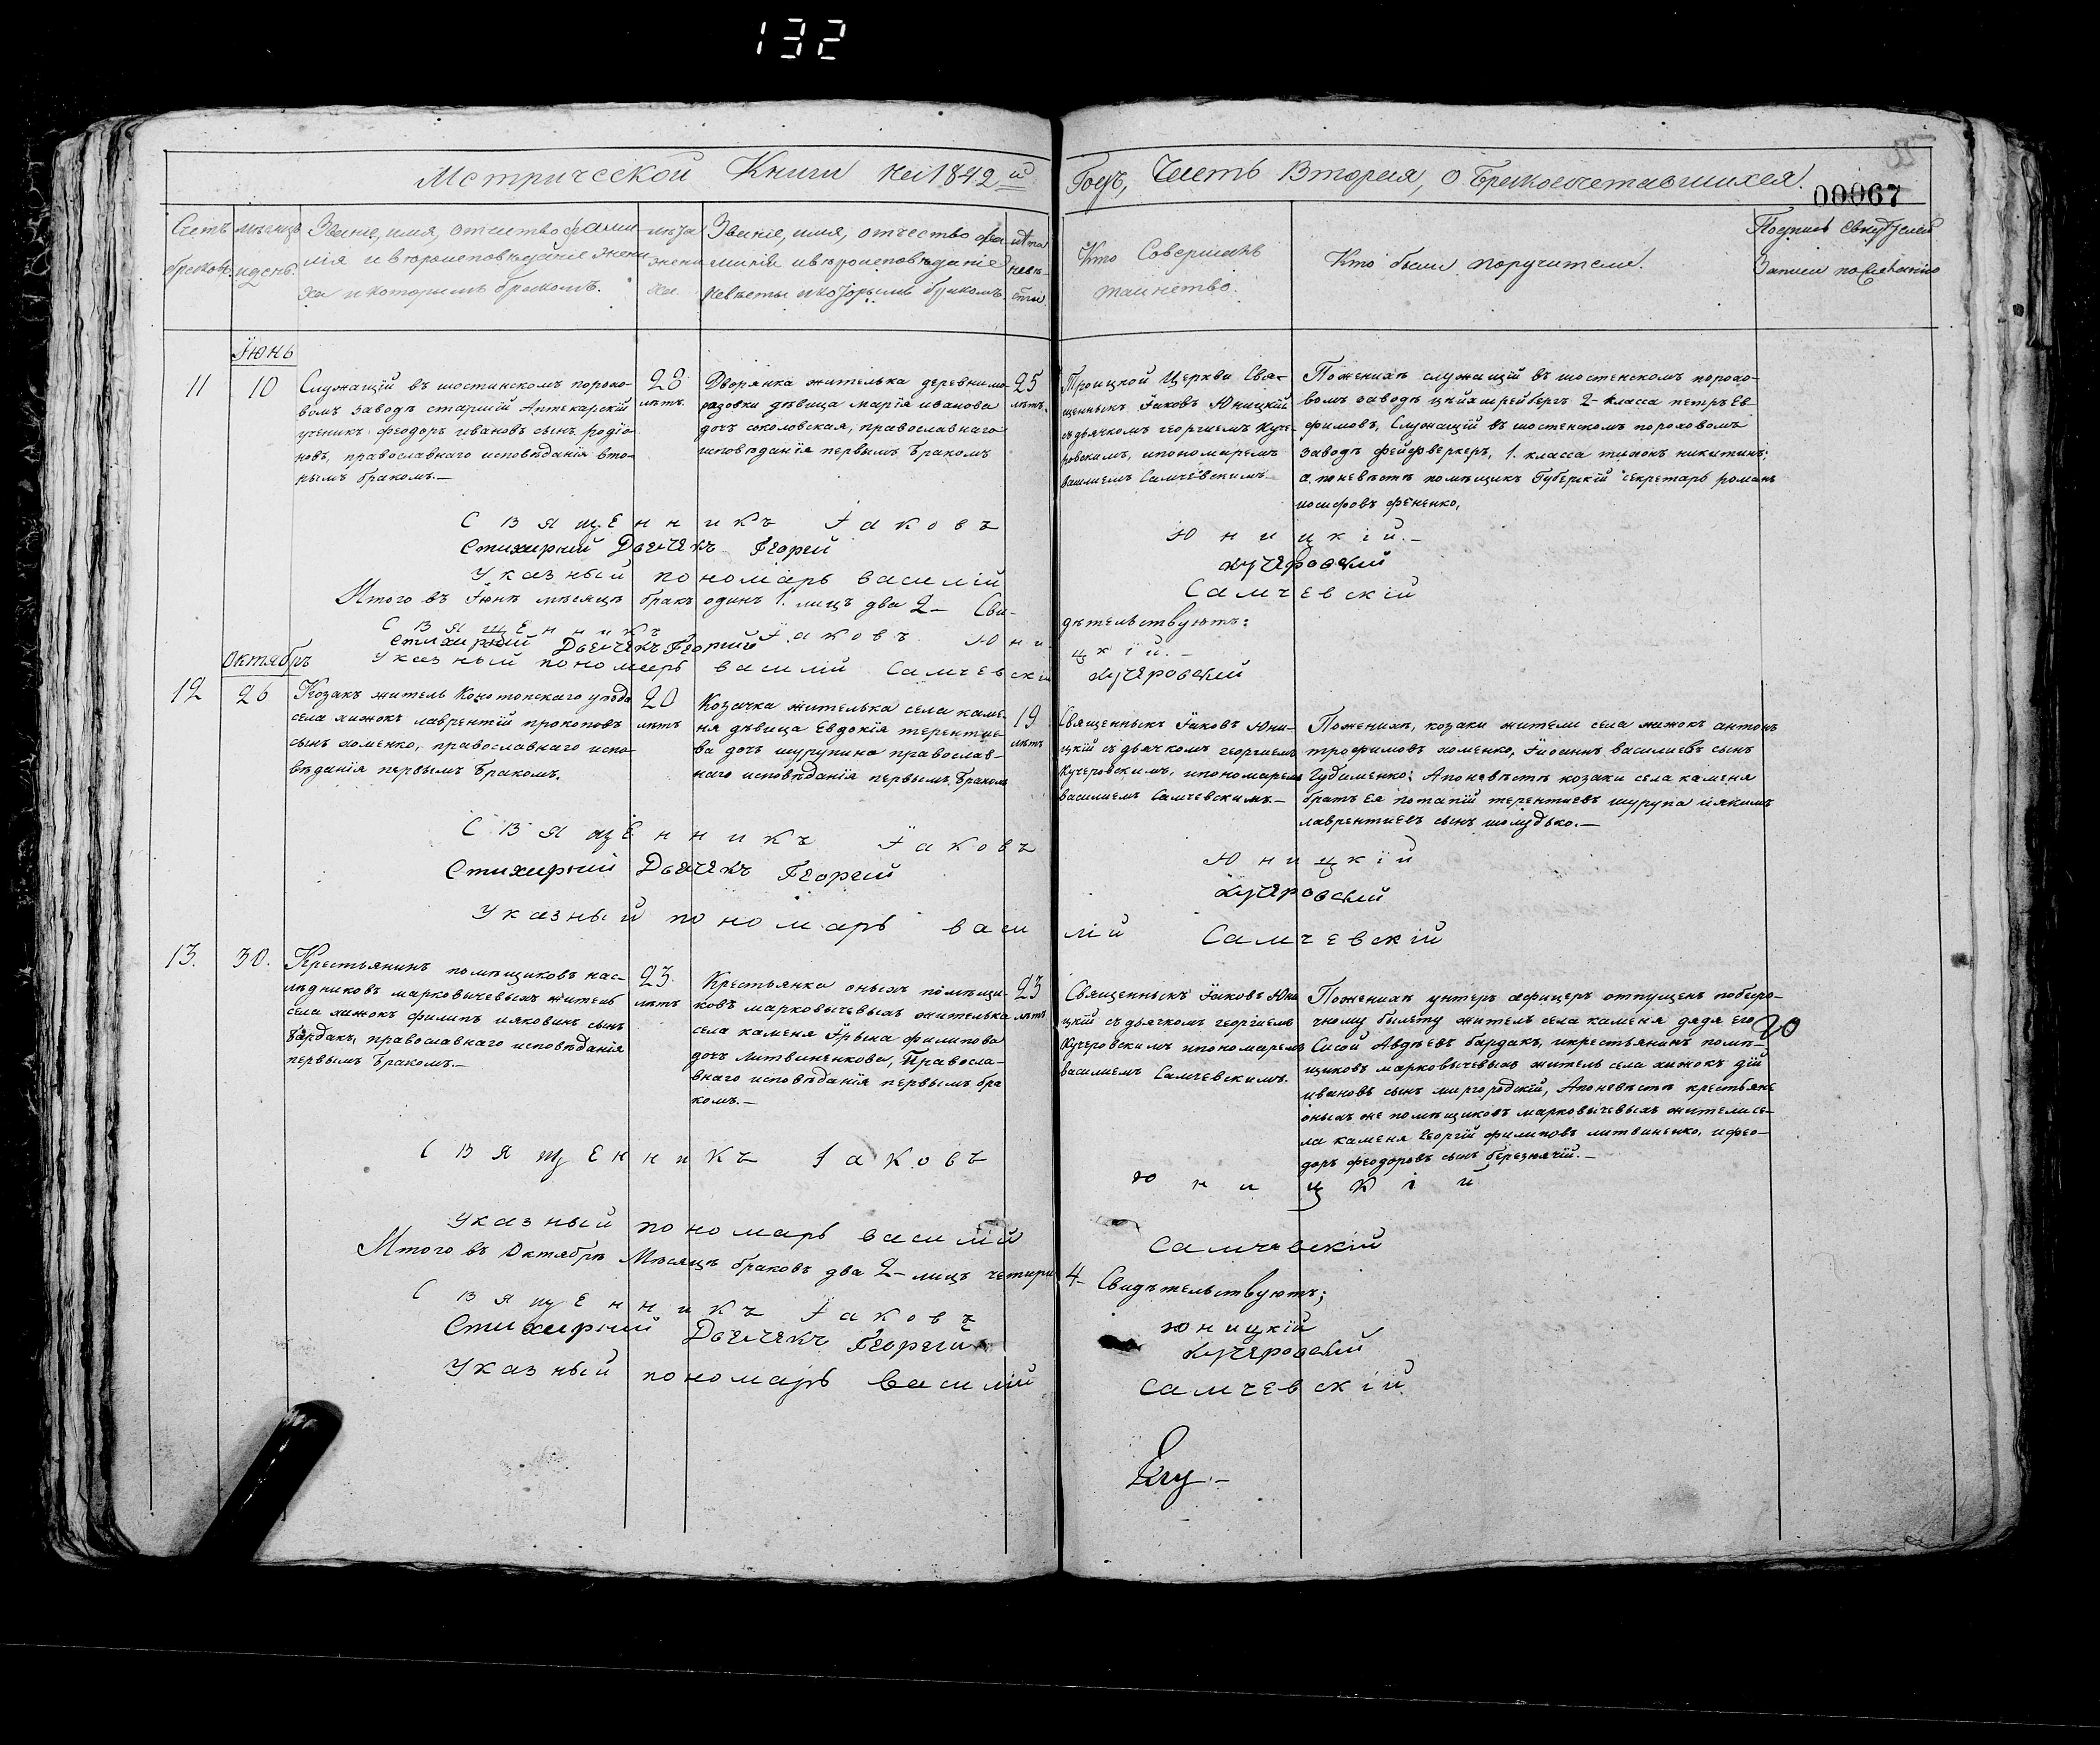 132
Метрической Книги на 1842 й Годъ, Часть Вторая, о Бракосочетавшихся.
00067
Счетъ браковъ.
мѣсяцъ и день.
Званіе, имя, отчество фами-
лія и вѣроисповѣданіе жени-
ха и которымъ бракомъ.
лѣта
жени
ха
Званіе, имя, отчество фа-
милія и вѣроисповѣданіе
невѣсты и которымъ бракомъ.
лѣта
невѣ
сты.
Кто Совершалъ
таинство.
Кто были поручители.
Подпись Свидѣтелей
Записи по желанію
Іюнь
11
10
Служащій въ шостинскомъ порохо-
вомъ заводѣ старшій Аптекарскій
ученикъ феодоръ ивановъ сынъ родіо-
новъ, православнаго исповѣданія вто-
рымъ бракомъ.—
28
лѣтъ
Дворянка жителька деревни мо-
развки дѣвица марія иванова
дочь соколовская, православнаго
исповѣданія первымъ бракомъ
25
лѣтъ.
Троицкой Церкви Свя-
щенныкъ Іаковъ Юницкій
съ дьячкомъ георгіемъ Куче-
ровскимъ, ипономаремъ
василиемъ Самчевскимъ.
Поженихѣ служащій въ шостенскомъ порохо-
вомъ заводѣ цейхшрейберъ 2- класса петръ Ев-
фимовъ, Служащій въ шостенскомъ пороховомъ
заводѣ фейфверкеръ, 1. класса никитинъ;
а поневѣстѣ помѣщикъ Губерскій секретарь романъ
иосифовъ фененко,
Священникъ Іаковъ Юницкій.—
Стихирный Дьячекъ Георгій Кучеровскій
Указный пономарь василій Самчевскій
Итого въ Іюнѣ мѣсяцѣ бракъ одинъ 1. лицъ два 2— Сви-
дѣтельствуютъ:
Священникъ Іаковъ Юницкій.—
Стихирный Дьячекъ Георгій Кучеровскій
Указный пономарь василій Самчевскій
Октябрь
12
26
Козакъ житель Конотопскаго уѣзда
села хижокъ лаврентій прокоповъ
сынъ хоменко, православнаго испо-
вѣданія первымъ бракомъ.
20
лѣтъ
Козачка жителька села каме-
ня дѣвица Евдокія терентие-
ва дочь шурупина православ-
наго исповѣданія первымъ бракомъ
19
лѣтъ
Священныкъ Іаковъ Юни-
цкій съ дьячкомъ георгіемъ
Кучеровскимъ, ипономаремъ
василиемъ Самчевскимъ.—
Поженихѣ, козаки жители села хижокъ антонъ
трофимовъ хоменко, василиевъ сынъ
Гудименко; Апоневѣстѣ козаки села каменя
братъ Ея потапій терентиевъ шурупа иякимъ
лаврентиевъ сынъ шолудько.—
Священникъ Іаковъ Юницкій
Стихирный Дьячекъ Георгій Кучеровскій
Указный пономарь василій Самчевскій
13.
30.
Крестьянинъ помѣщиковъ нас-
лѣдниковъ марковичевыхъ житель
села хижокъ филипъ ияковинъ сынъ
бардакъ, православнаго исповѣданія
первымъ бракомъ.—
23.
лѣтъ
Крестьянка оныхъ помѣщи-
ковъ марковычевыхъ жителька
села каменя филипова
дочь литвиненкова, Правосла-
внаго исповѣданія первымъ бра
комъ.—
23
лѣтъ
Священныкъ Іаковъ Юни
цкій съ дьячкомъ георгіемъ
Кучеровскимъ ипономаремъ
василиемъ Самчевскимъ.
Поженихѣ унтеръ афицеръ отпущенъ побесро-
чному былету житель села каменя дядя его
Сисой Авдѣевъ бардакъ, икрестьянинъ помѣ-
щиковъ марковычевыхъ житель села хижокъ
ивановъ сынъ миргородскій, Апоневѣстѣ крестьяне
оныхъ же помѣщиковъ марковычевыхъ жители се-
ла каменя Георгій филиповъ литвиненко, ифео-
доръ феодоровъ сынъ березнячій.—
20
Священникъ Іаковъ Юницкій
Указный пономарь василій Самчевскій
Итого въ Октябрѣ Мѣсяцѣ браковъ два 2— лицъ четири 4— Свидѣтельствуютъ;
Священникъ Іаковъ Юницкій
Стихирный Дьячекъ Георгій Кучеровскій
Указный пономарь Василій Самчевскій